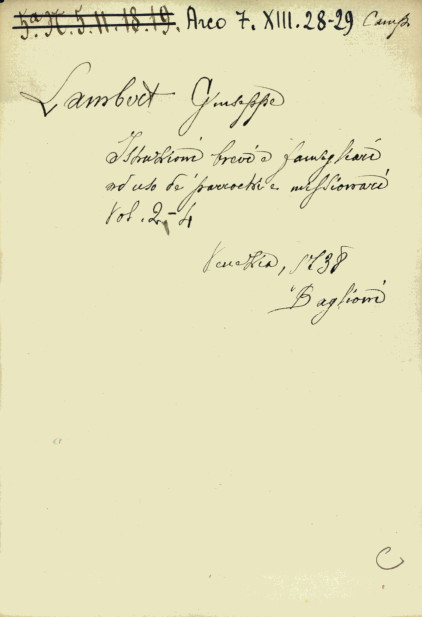 5ª. N. 5. 11. 18. 19. Arco 7. XIII. 28-29 Camp.
Lambert Giuseppe
Istruzioni brevi e famigliari
ad uso de' parrochi e missionari
Vol. 2-4
Venezia, 1738
Baglioni
C